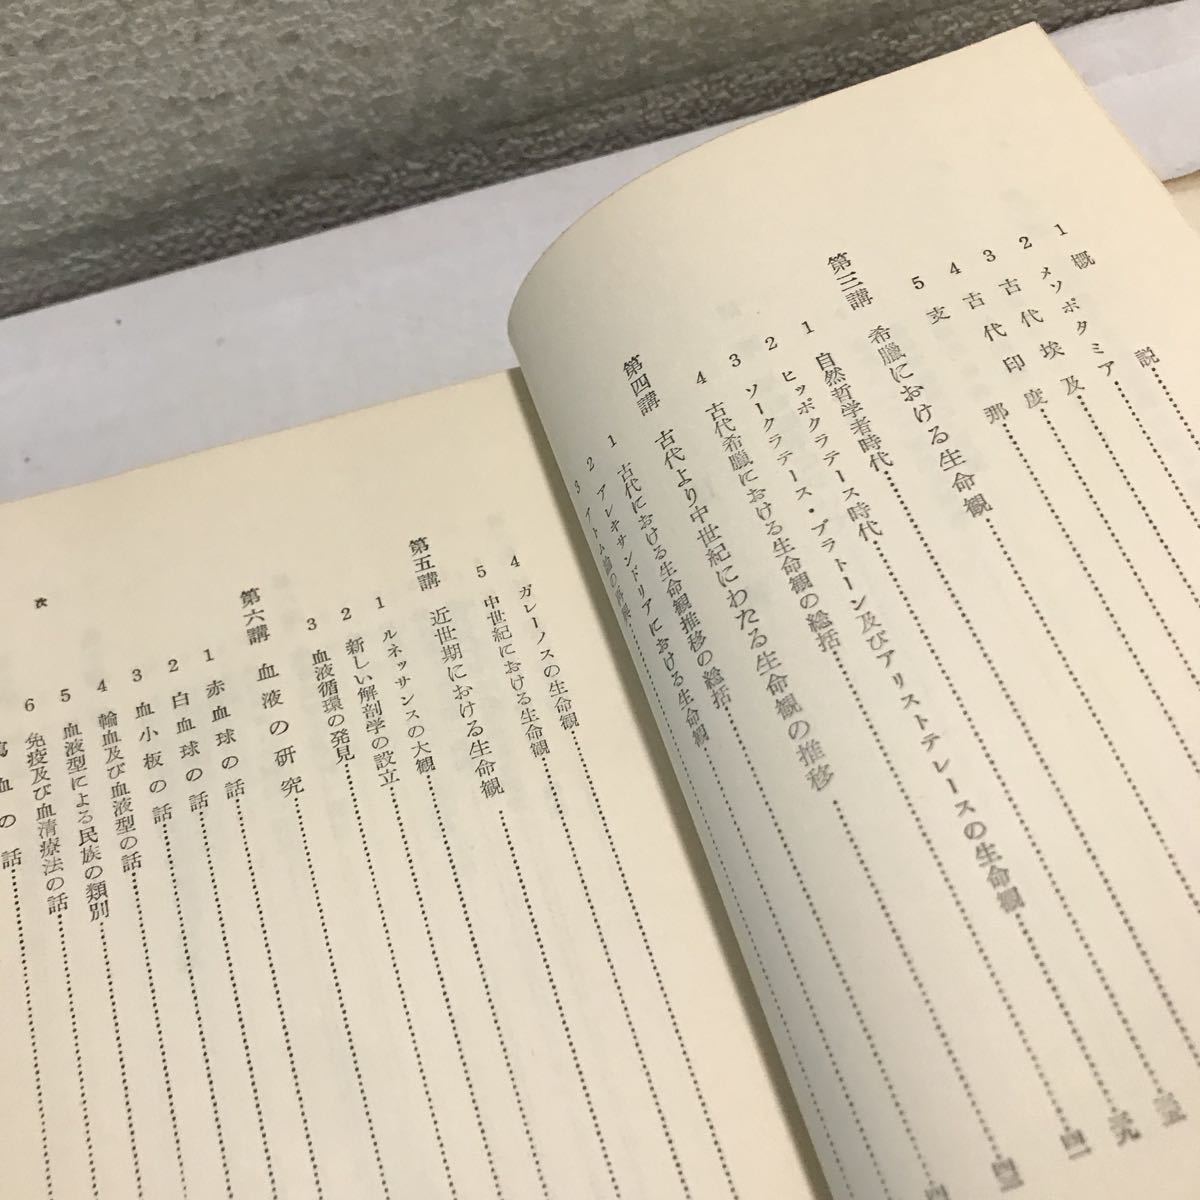 1 概説
2 メソポタミア
3 古代埃及
4 古代印度
5 支那
第三講 希臘における生命観
1 自然哲学者時代
2 ヒッポクラテース時代
3 ソークラテース・プラトーン及びアリストテレースの生命観
4 古代希臘における生命観の総括
第四講 古代より中世紀にわたる生命観の推移
1 古代における生命観推移の総括
2 アレキサンドリアにおける生命観
3 アトム論の再興
4 ガレーノスの生命観
5 中世紀における生命観
第五講 近世期における生命観
1 ルネッサンスの大観
2 新しい解剖学の設立
3 血液循環の発見
第六講 血液の研究
1 赤血球の話
2 白血球の話
3 血小板の話
4 輸血及び血液型の話
5 血液型による民族の類別
6 免疫及び血清療法の話
血の話
次